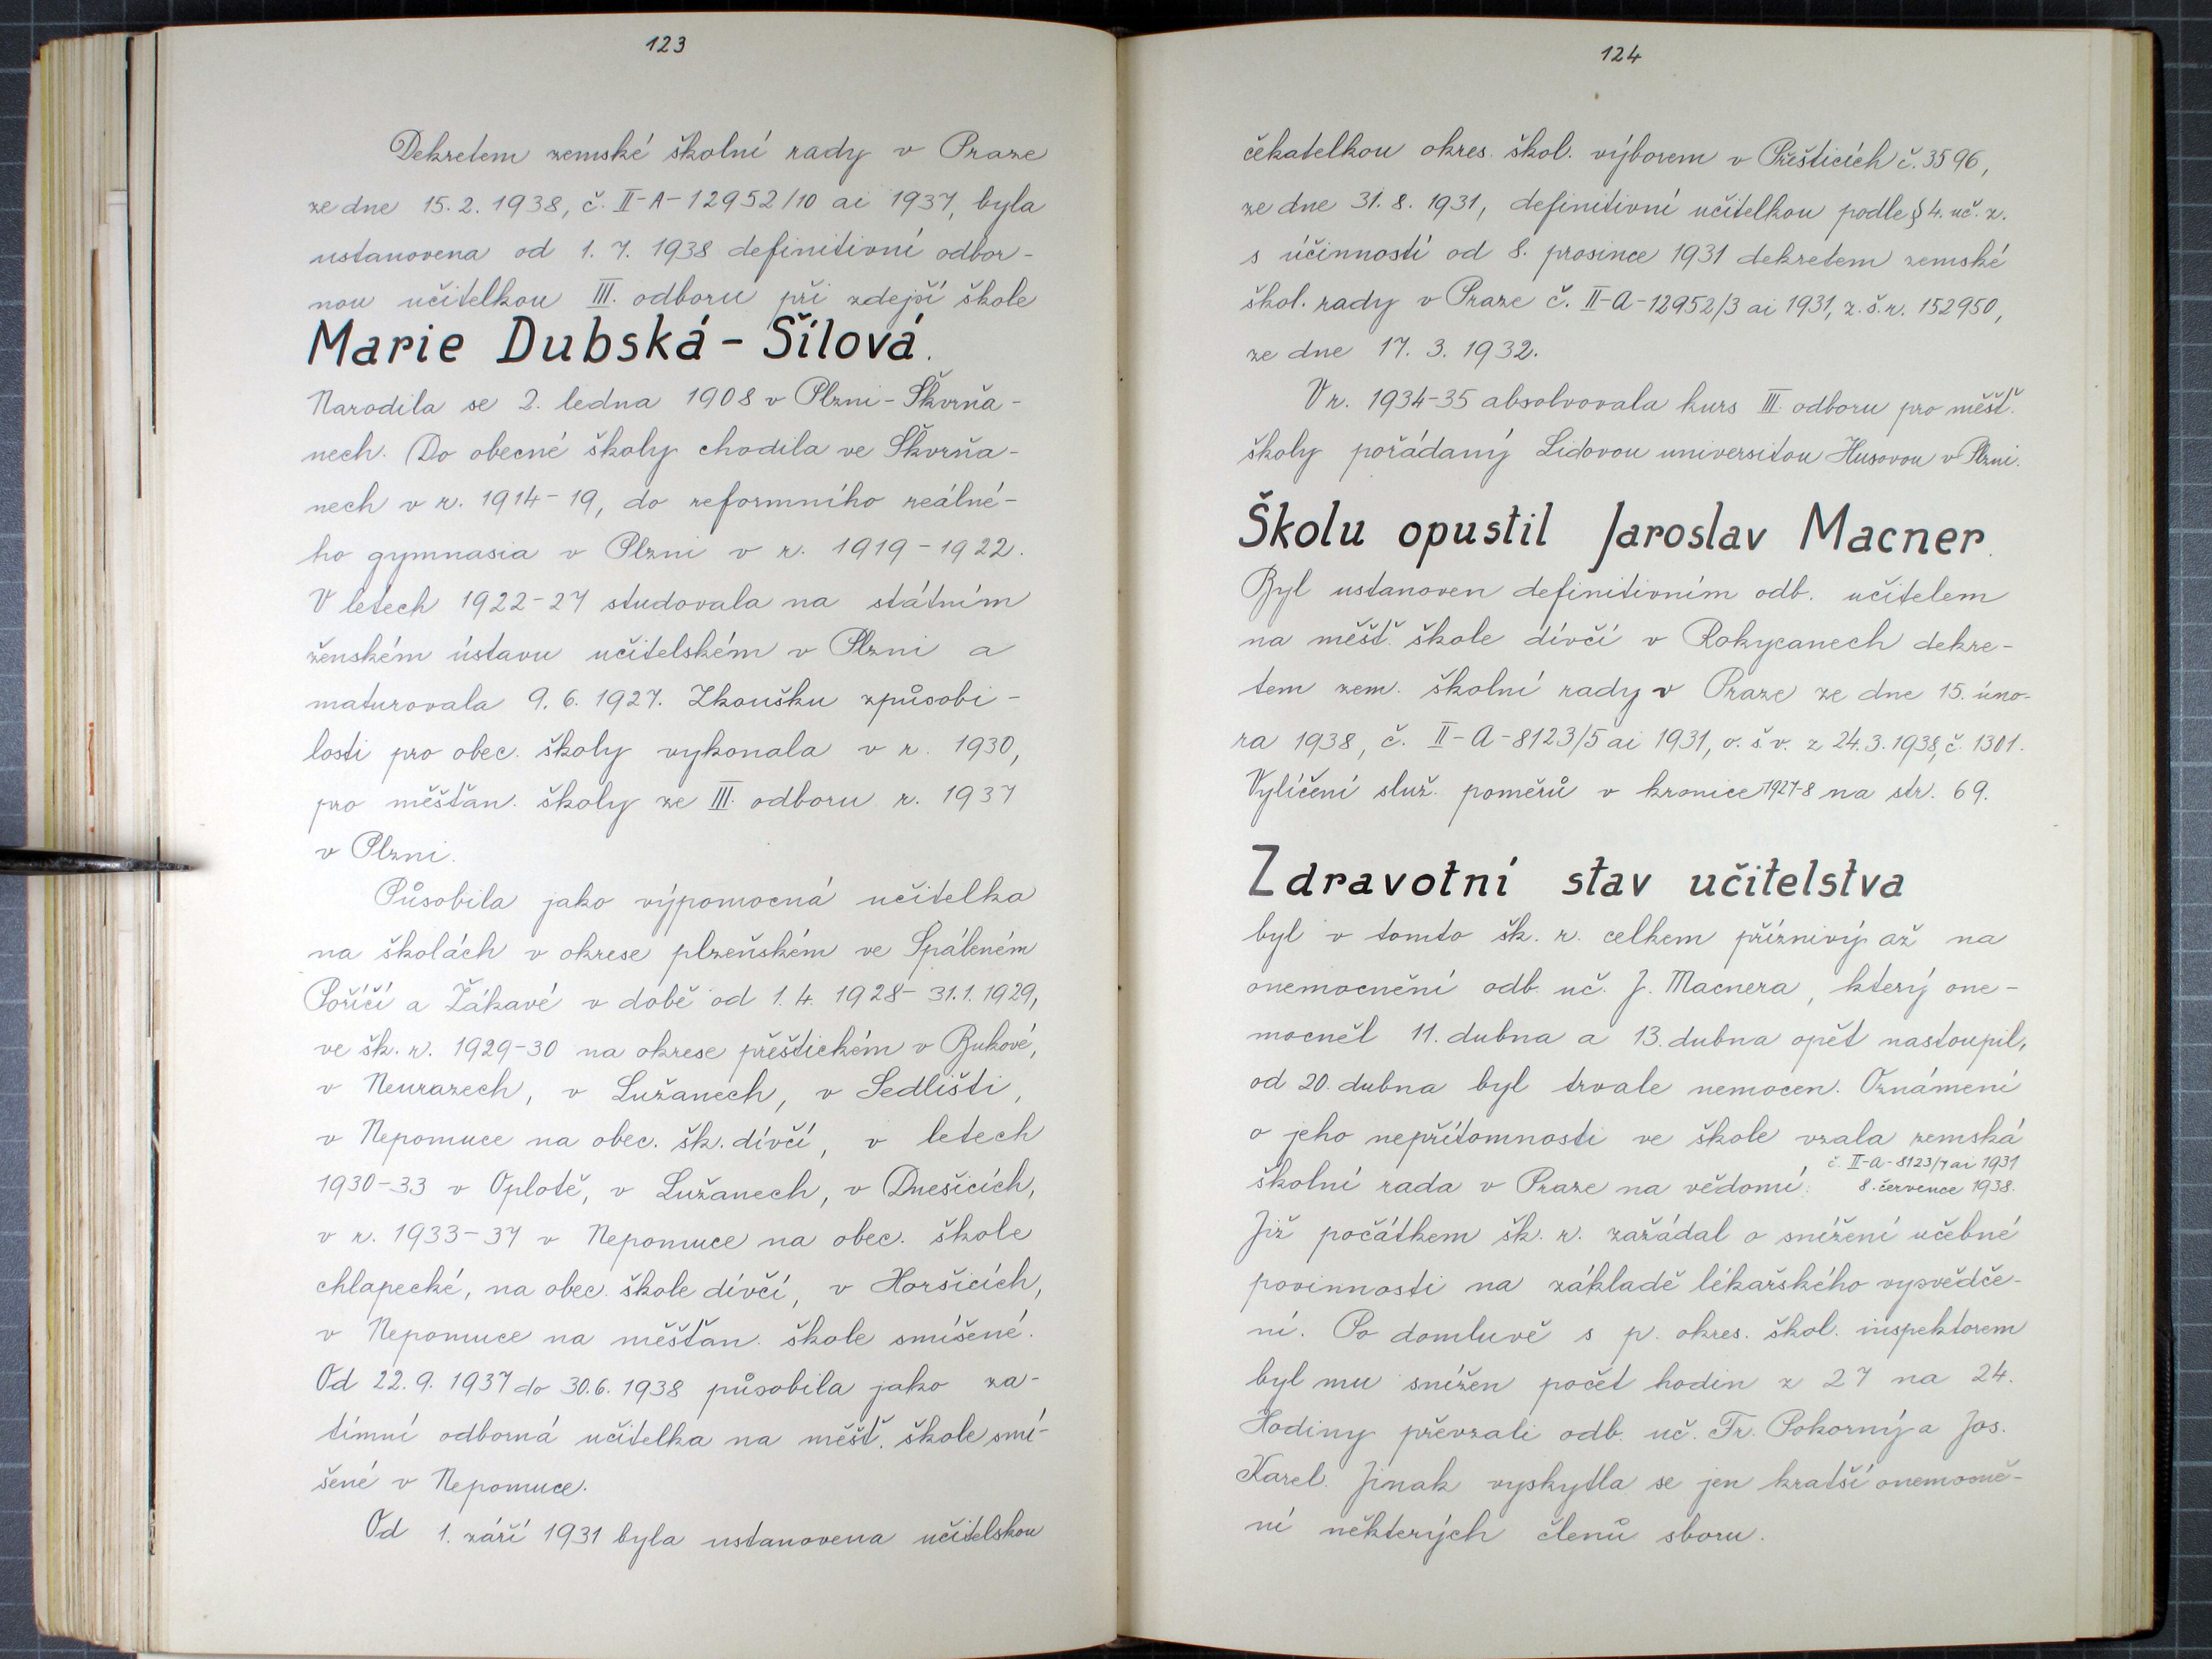 123
Dekretem zemské školní rady v Praze
ze dne 15. 2. 1938, č. II-A-12952/10 ai 1937, byla
ustanovena od 1. 7. 1938 definitivní odbor-
nou učitelkou III. odboru při zdejší škole
Marie Dubská - Šílová.
Narodila se 2. ledna 1908 v Plzni - Škvrňa-
nech. Do obecné školy chodila ve Škvrňa-
nech v r. 1914-19, do reformního reálné-
ho gymnasia v Plzni v r. 1919-1922.
V letech 1922-27 studovala na státním
ženském ústavu učitelském v Plzni a
maturovala 9. 6. 1927. Zkoušku způsobi-
losti pro obec. školy vykonala v r. 1930,
pro měšťan. školy ze III. odboru r. 1937
v Plzni.
Působila jako výpomocná učitelka
na školách v okrese plzeňském ve Spáleném
Poříčí a Žákavé v době od 1. 4. 1928 - 31. 1. 1929,
ve šk. r. 1929-30 na okrese přeštickém v Bukové,
v Neurazech, v Lužanech, v Sedlišti,
v Nepomuce na obec. šk. dívčí, v letech
1930-33 v Oplotě, v Lužanech, v Dnešicích,
v r. 1933-37 v Nepomuce na obec. škole
chlapecké, na obec. škole dívčí, v Horšicích,
v Nepomuce na měšťan. škole smíšené.
Od 22. 9. 1937 do 30. 6. 1938 působila jako za-
tímní odborná učitelka na měšť. škole smí-
šené v Nepomuce.
Od 1. září 1931 byla ustanovena učitelskou
124
čekatelkou okres. škol. výborem v Přešticích č. 3596,
ze dne 31. 8. 1931, definitivní učitelkou podle § 4. uč. z.
s účinností od 8. prosince 1931 dekretem zemské
škol. rady v Praze č. II-A-12952/3 ai 1931, z. š. r. 152950,
ze dne 17. 3. 1932.
V r. 1934-35 absolvovala kurs III. odboru pro měšť.
školy pořádaný Lidovou universitou Husovou v Plzni.
Školu opustil Jaroslav Macner.
Byl ustanoven definitivním odb. učitelem
na měšť. škole dívčí v Rokycanech dekre-
tem zem. školní rady v Praze ze dne 15. úno-
ra 1938, č. II-A-8123/5 ai 1931, o. š. v. z 24. 3. 1938, č. 1301.
Vylíčení služ. poměrů v kronice 1927-8 na str. 69.
Zdravotní stav učitelstva
byl v tomto šk. r. celkem příznivý až na
onemocnění odb. uč. J. Macnera, který one-
mocněl 11. dubna a 13. dubna opět nastoupil,
od 20. dubna byl trvale nemocen. Oznámení
o jeho nepřítomnosti ve škole vzala zemská
č. II-A-8123/7 ai 1931
školní rada v Praze na vědomí. 8. července 1938.
Již počátkem šk. r. zažádal o snížení učebné
povinnosti na základě lékařského vysvědče-
ní. Po domluvě s p. okres. škol. inspektorem
byl mu snížen počet hodin z 27 na 24.
Hodiny převzali odb. uč. Fr. Pokorný a Jos.
Karel. Jinak vyskytla se jen kratší onemocně-
ní některých členů sboru.